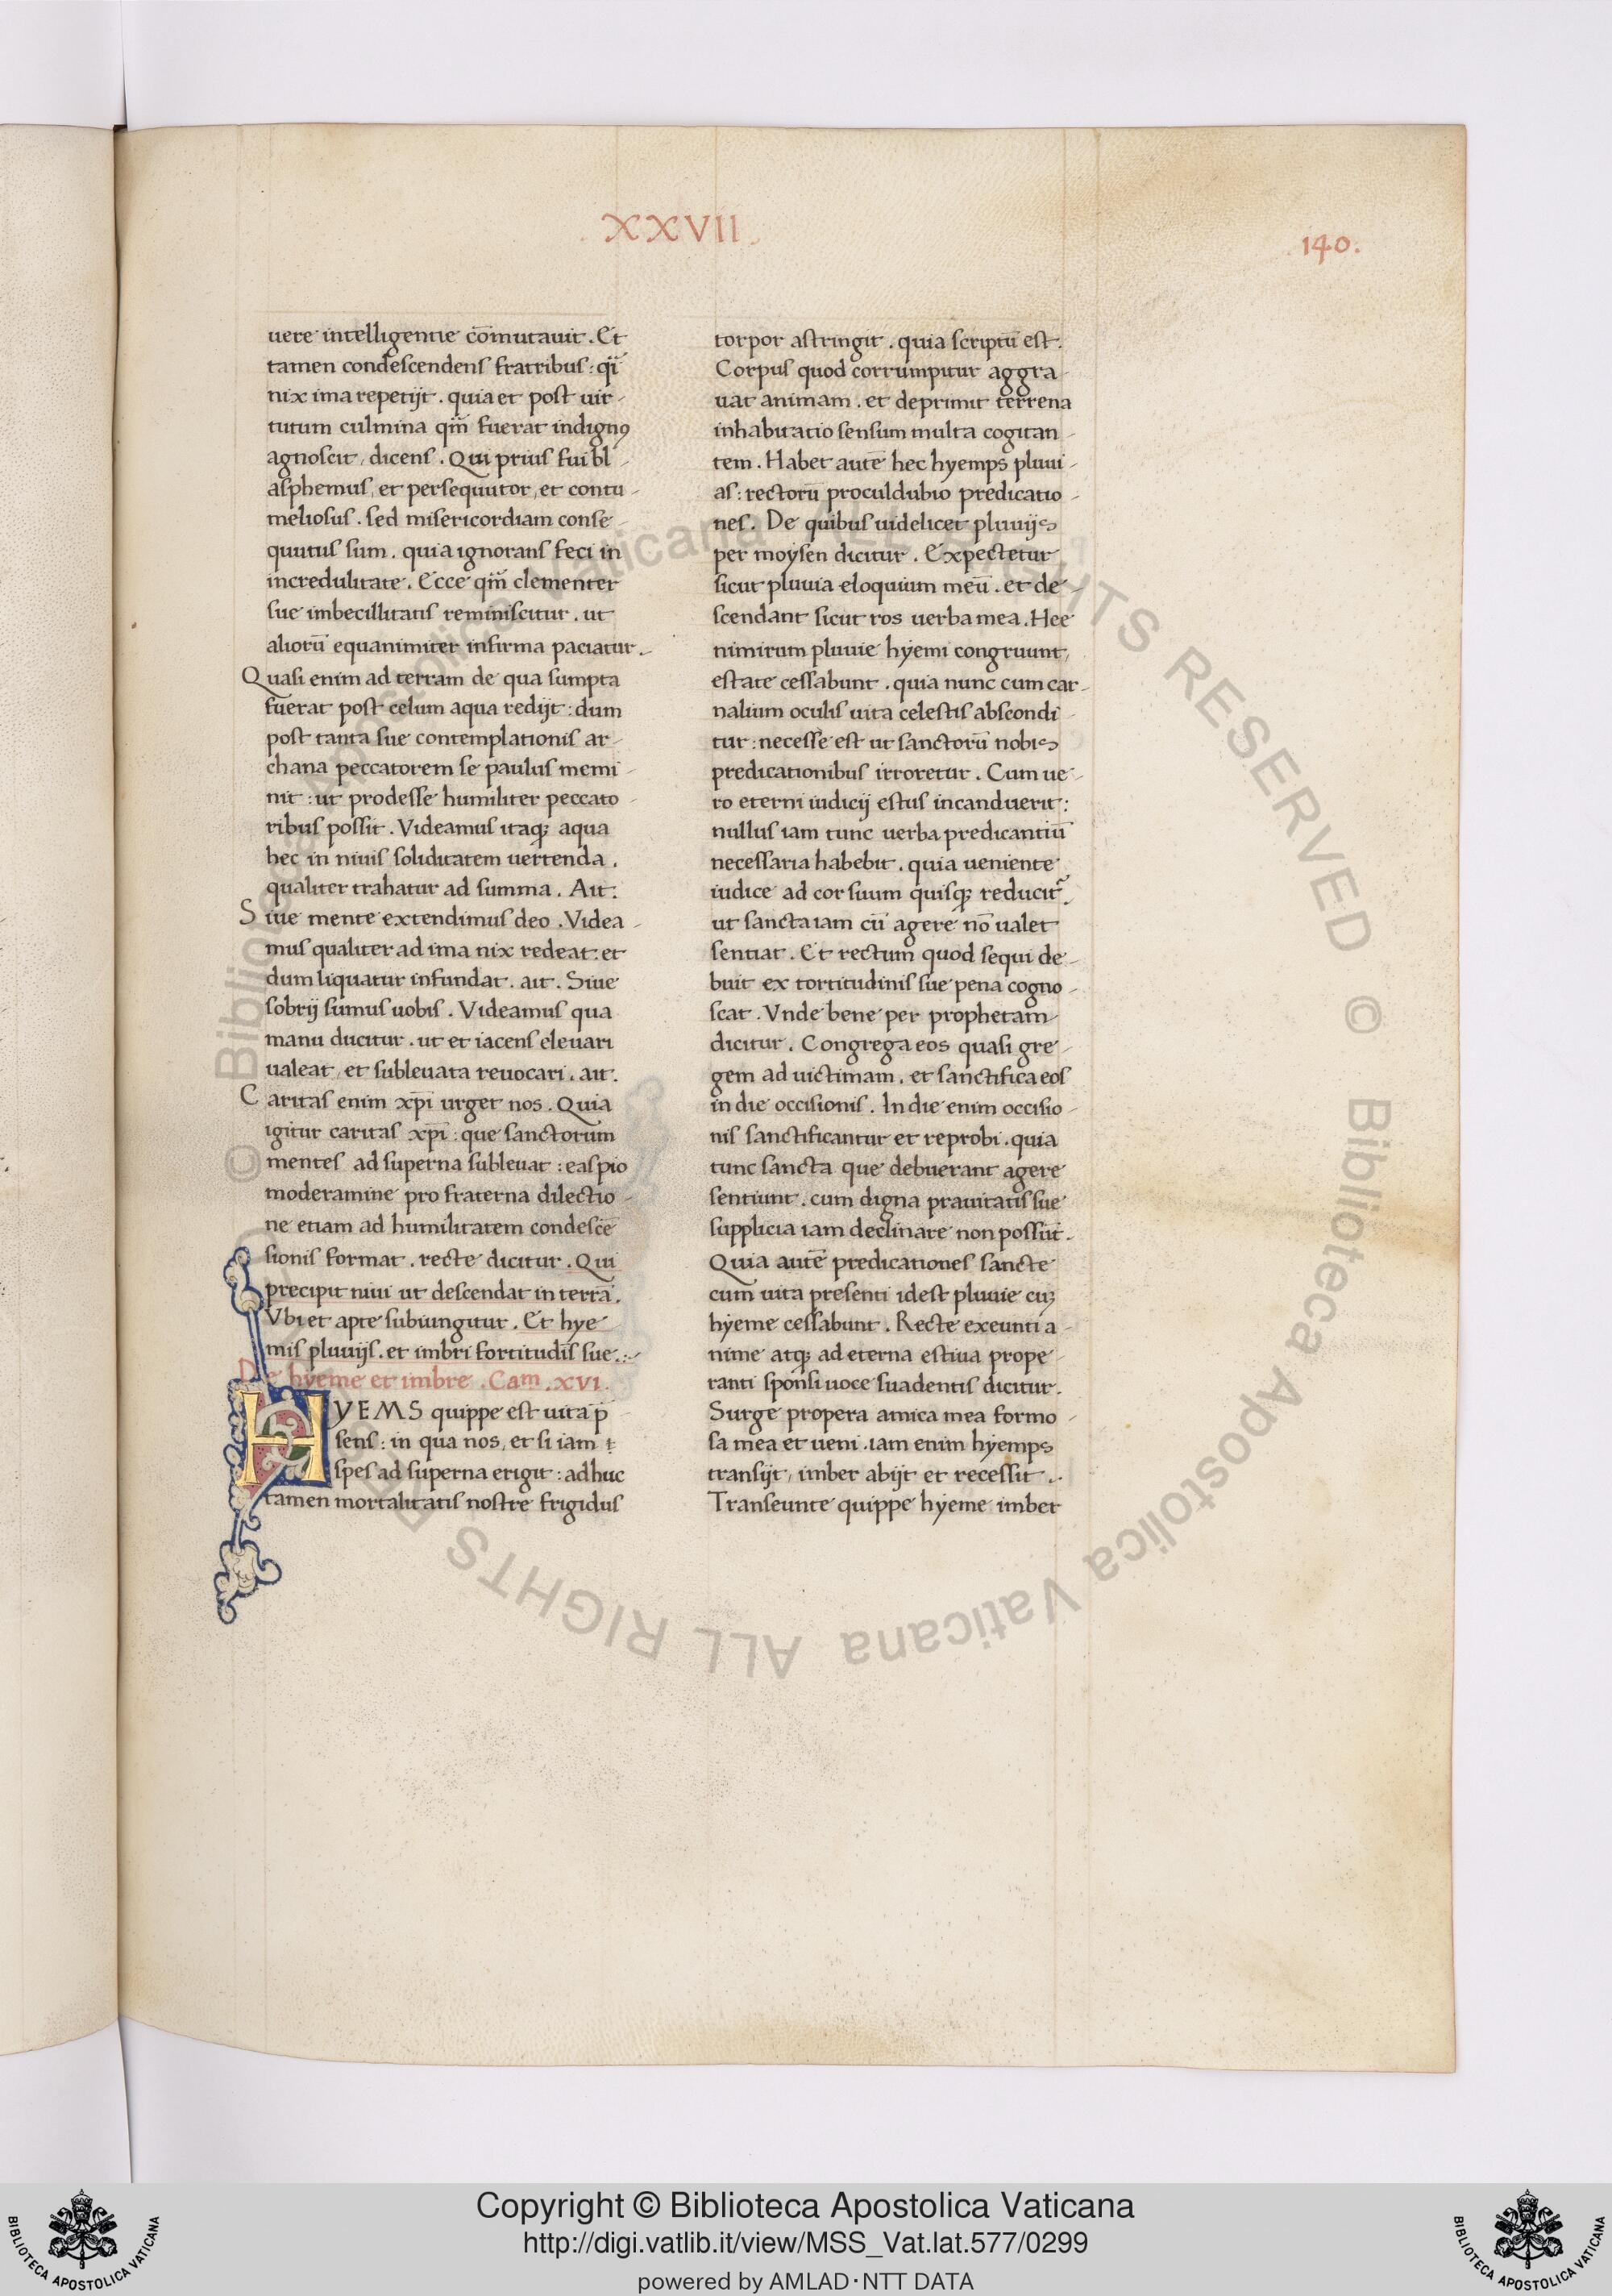 XXVII
140.
uere intelligentie cōmutauit. Et
tamen condescendens fratribus: q̄i
nix ima repetijt. quia et post uir-
tutum culmina qm̄ fuerat indignꝯ
agnoscit, dicens. Qui prius fui bl-
asphemus, et persequutor, et contu-
meliosus. sed misericordiam conse-
quutus sum. quia ignorans feci in
incredulitate. Ecce qm̄ clementer
sue imbecillitatis reminiscitur. ut
aliorū equanimiter infirma paciatur.
Quasi enim ad terram de qua sumpta
fuerat post celum aqua redijt: dum
post tanta sue contemplationis ar-
chana peccatorem se paulus memi-
nit: ut prodesse humiliter peccato-
ribus possit. Videamus itaqꝫ aqua
hec in niuis soliditatem uertenda.
qualiter trahatur ad summa. Ait:
Siue mente extendimus deo. Videa-
mus qualiter ad ima nix redeat: et
dum liquatur infundat. ait. Siue
sobrij sumus uobis. Videamus qua
manu ducitur. ut et iacens eleuari
ualeat, et subleuata reuocari. ait.
Caritas enim xp̄i urget nos. Quia
igitur caritas xp̄i: que sanctorum
mentes ad superna subleuat: eas pio
moderamine pro fraterna dilectio-
ne etiam ad humilitatem condescē
sionis format. recte dicitur. Qui
precipit niui ut descendat in terrā.
Vbi et apte subiungitur. Et hye-
mis pluuijs. et imbri fortitudīs sue.:-
De hyeme et imbre. Cam. XVI.
HYEMS quippe est uita p̄-
sens: in qua nos, et si iam
spes ad superna erigit: adhuc
tamen mortalitatis nostre frigidus
torpor astringit. quia scriptū est.
Corpus quod corrumpitur aggra-
uat animam. et deprimit terrena
inhabitatio sensum multa cogitan-
tem. Habet autē hec hyemps pluui-
as: rectorū proculdubio predicatio-
nes. De quibus uidelicet pluuijs
per moysen dicitur. Expectetur
sicut pluuia eloquium meū. et de-
scendant sicut ros uerba mea. Hee
nimirum pluuie hyemi congruunt,
estate cessabunt. quia nunc cum car-
nalium oculis uita celestis abscondi-
tur: necesse est ut sanctorū nobis
predicationibus irroretur. Cum ue-
ro eterni iudicij estus incanduerit:
nullus iam tunc uerba predicantiū
necessaria habebit. quia ueniente
iudice ad cor suum quisqꝫ reducit᷑.
ut sancta iam cū agere nō ualet
sentiat. Et rectum quod sequi de-
buit ex tortitudinis sue pena cogno-
scat. Vnde bene per prophetam
dicitur. Congrega eos quasi gre-
gem ad uictimam. et sanctifica eos
in die occisionis. In die enim occisio-
nis sanctificantur et reprobi. quia
tunc sancta que debuerant agere
sentiunt. cum digna prauitatis sue
supplicia iam declinare non possūt.
Quia autē predicationes sancte
cum uita presenti idest pluuie cuꝫ
hyeme cessabunt. Recte exeunti a-
nime atqꝫ ad eterna estiua prope-
ranti sponsi uoce suadentis dicitur.
Surge propera amica mea formo-
sa mea et ueni. iam enim hyemps
transijt, imber abijt et recessit.
Transeunte quippe hyeme imber
© Biblioteca Apostolica Vaticana ALL RIGHTS RESERVED © Biblioteca Apostolica Vaticana ALL RIGHTS RE
Copyright © Biblioteca Apostolica Vaticana
http://digi.vatlib.it/view/MSS_Vat.lat.577/0299
powered by AMLAD·NTT DATA
BIBLIOTECA APOSTOLICA VATICANA
BIBLIOTECA APOSTOLICA VATICANA